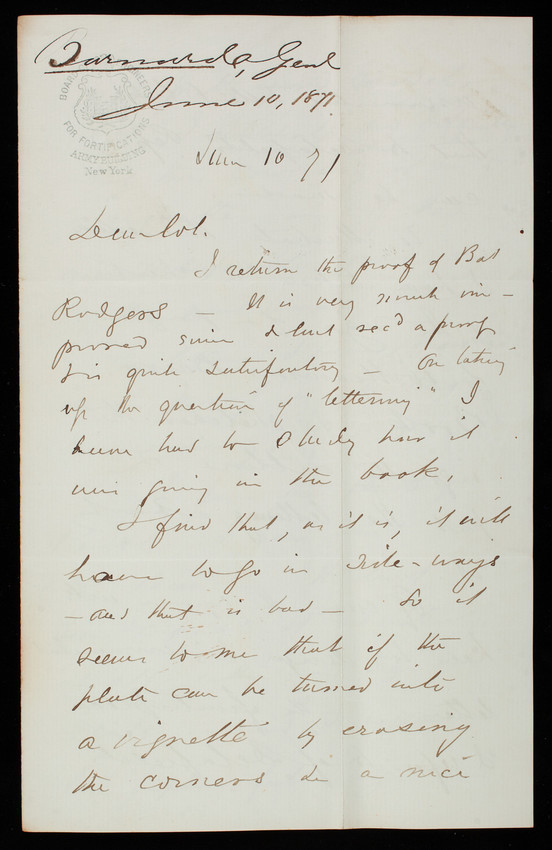 Barnard, Genl
June 10, 1871
BOARD OF ENGINEERS
FOR FORTIFICATIONS
ARMY BUILDING
New York
June 10 71
Dear Col.
I return the proof of Bat
Rodgers – It is very much im-
proved since I last rec'd a proof
& is quite satisfactory – On taking
up the question of "lettering" I
have had to study how it
was going in the book.
I find that, as it is, it will
have to go in side-ways
– and that is bad – So it
seems to me that if the
plate can be turned into
a vignette by erasing
the corners in a nice